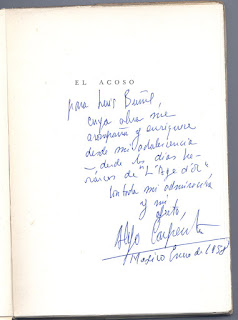 EL ACOSO
para Luis Buñuel,
cuya obra me
acompaña y enriquece
desde mi adolescencia
— desde los días he-
róicos de "L'Age d'or"
con toda mi admiración
y mi
afecto
Alejo Carpentier
Mexico Enero de 1958